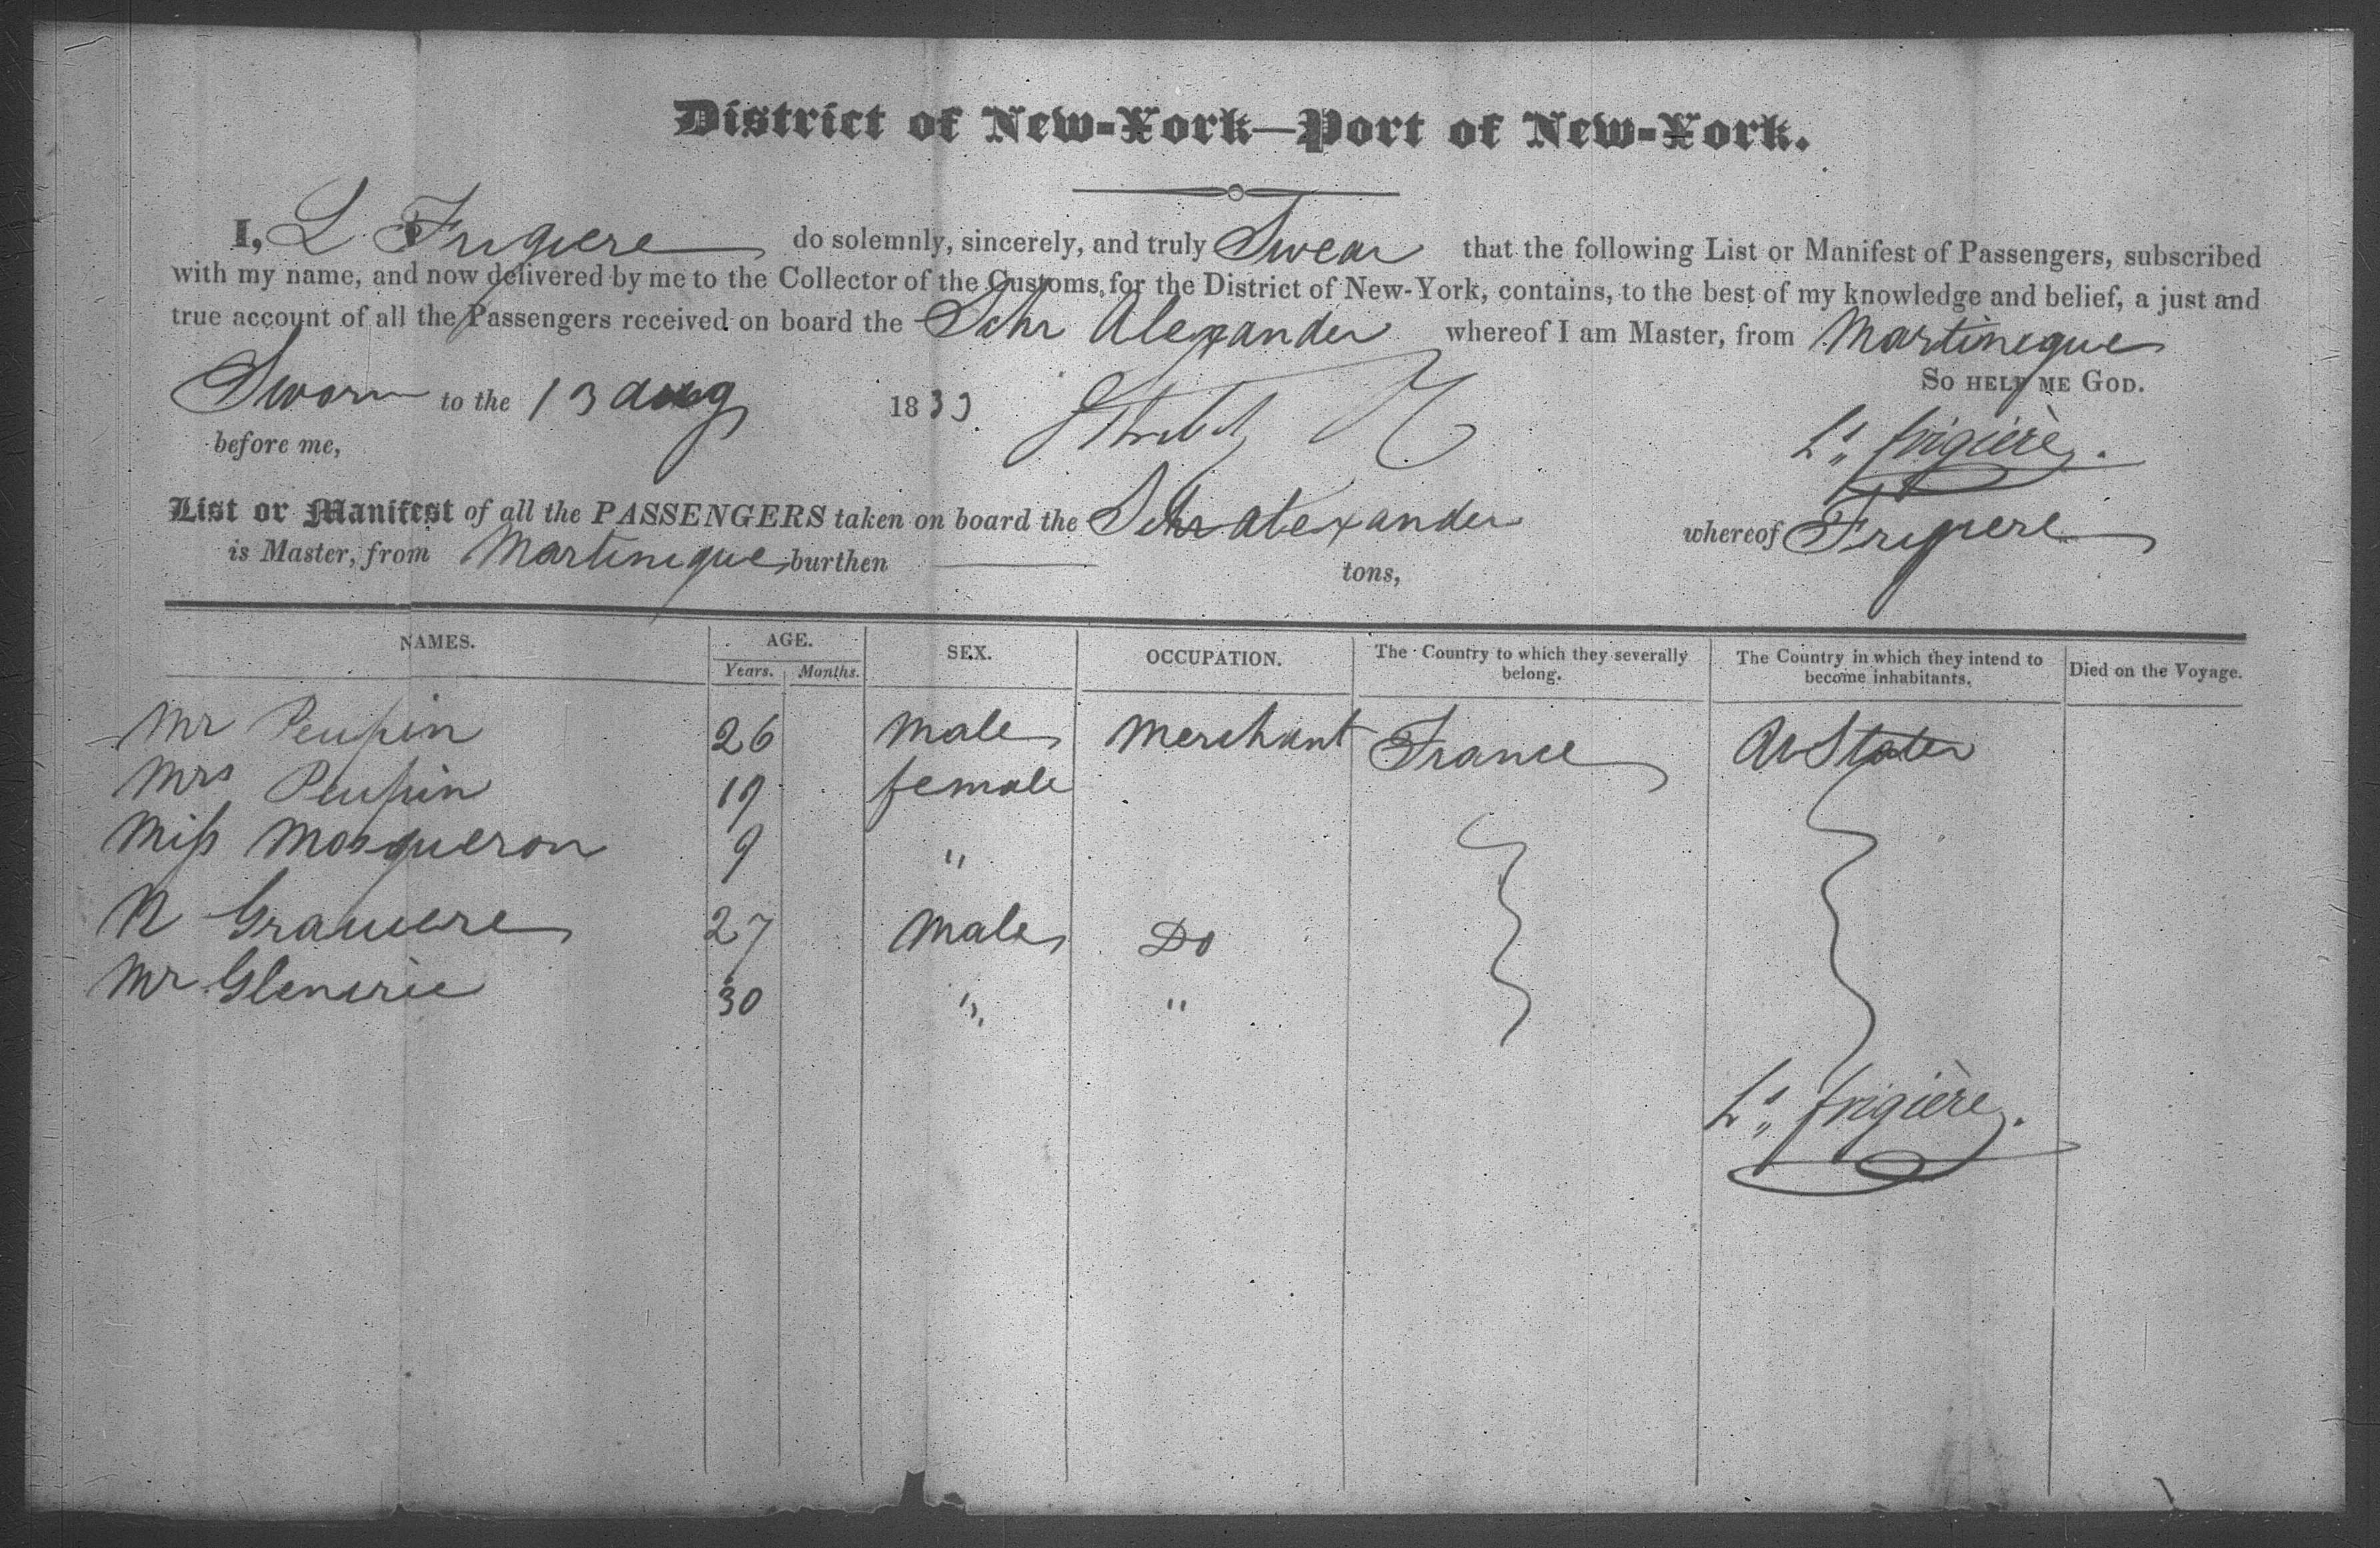 District of New-York—Port of New-York.
I, L Frigiere do solemnly, sincerely, and truly Swear that the following List or Manifest of Passengers, subscribed
with my name, and now delivered by me to the Collector of the Customs, for the District of New-York, contains, to the best of my knowledge and belief, a just and
true account of all the Passengers received on board the Schr Alexander whereof I am Master, from Martinique
So help me God.
Sworn to the 13 Aug 183
before me,
Ls, frigière.
List or Manifest of all the PASSENGERS taken on board the Schr Alexander whereof Frigiere
is Master, from Martinique, burthen — tons,
NAMES. AGE. SEX. OCCUPATION. The Country to which they severally belong. The Country in which they intend to become inhabitants. Died on the Voyage.
Years. Months.
Mr Peupin 26 Male Merchant France U States
Mrs Peupin 19 female
Miss Mosqueron 9 "
N 27 Male Do
Mr 30 " "
Ls, frigière.